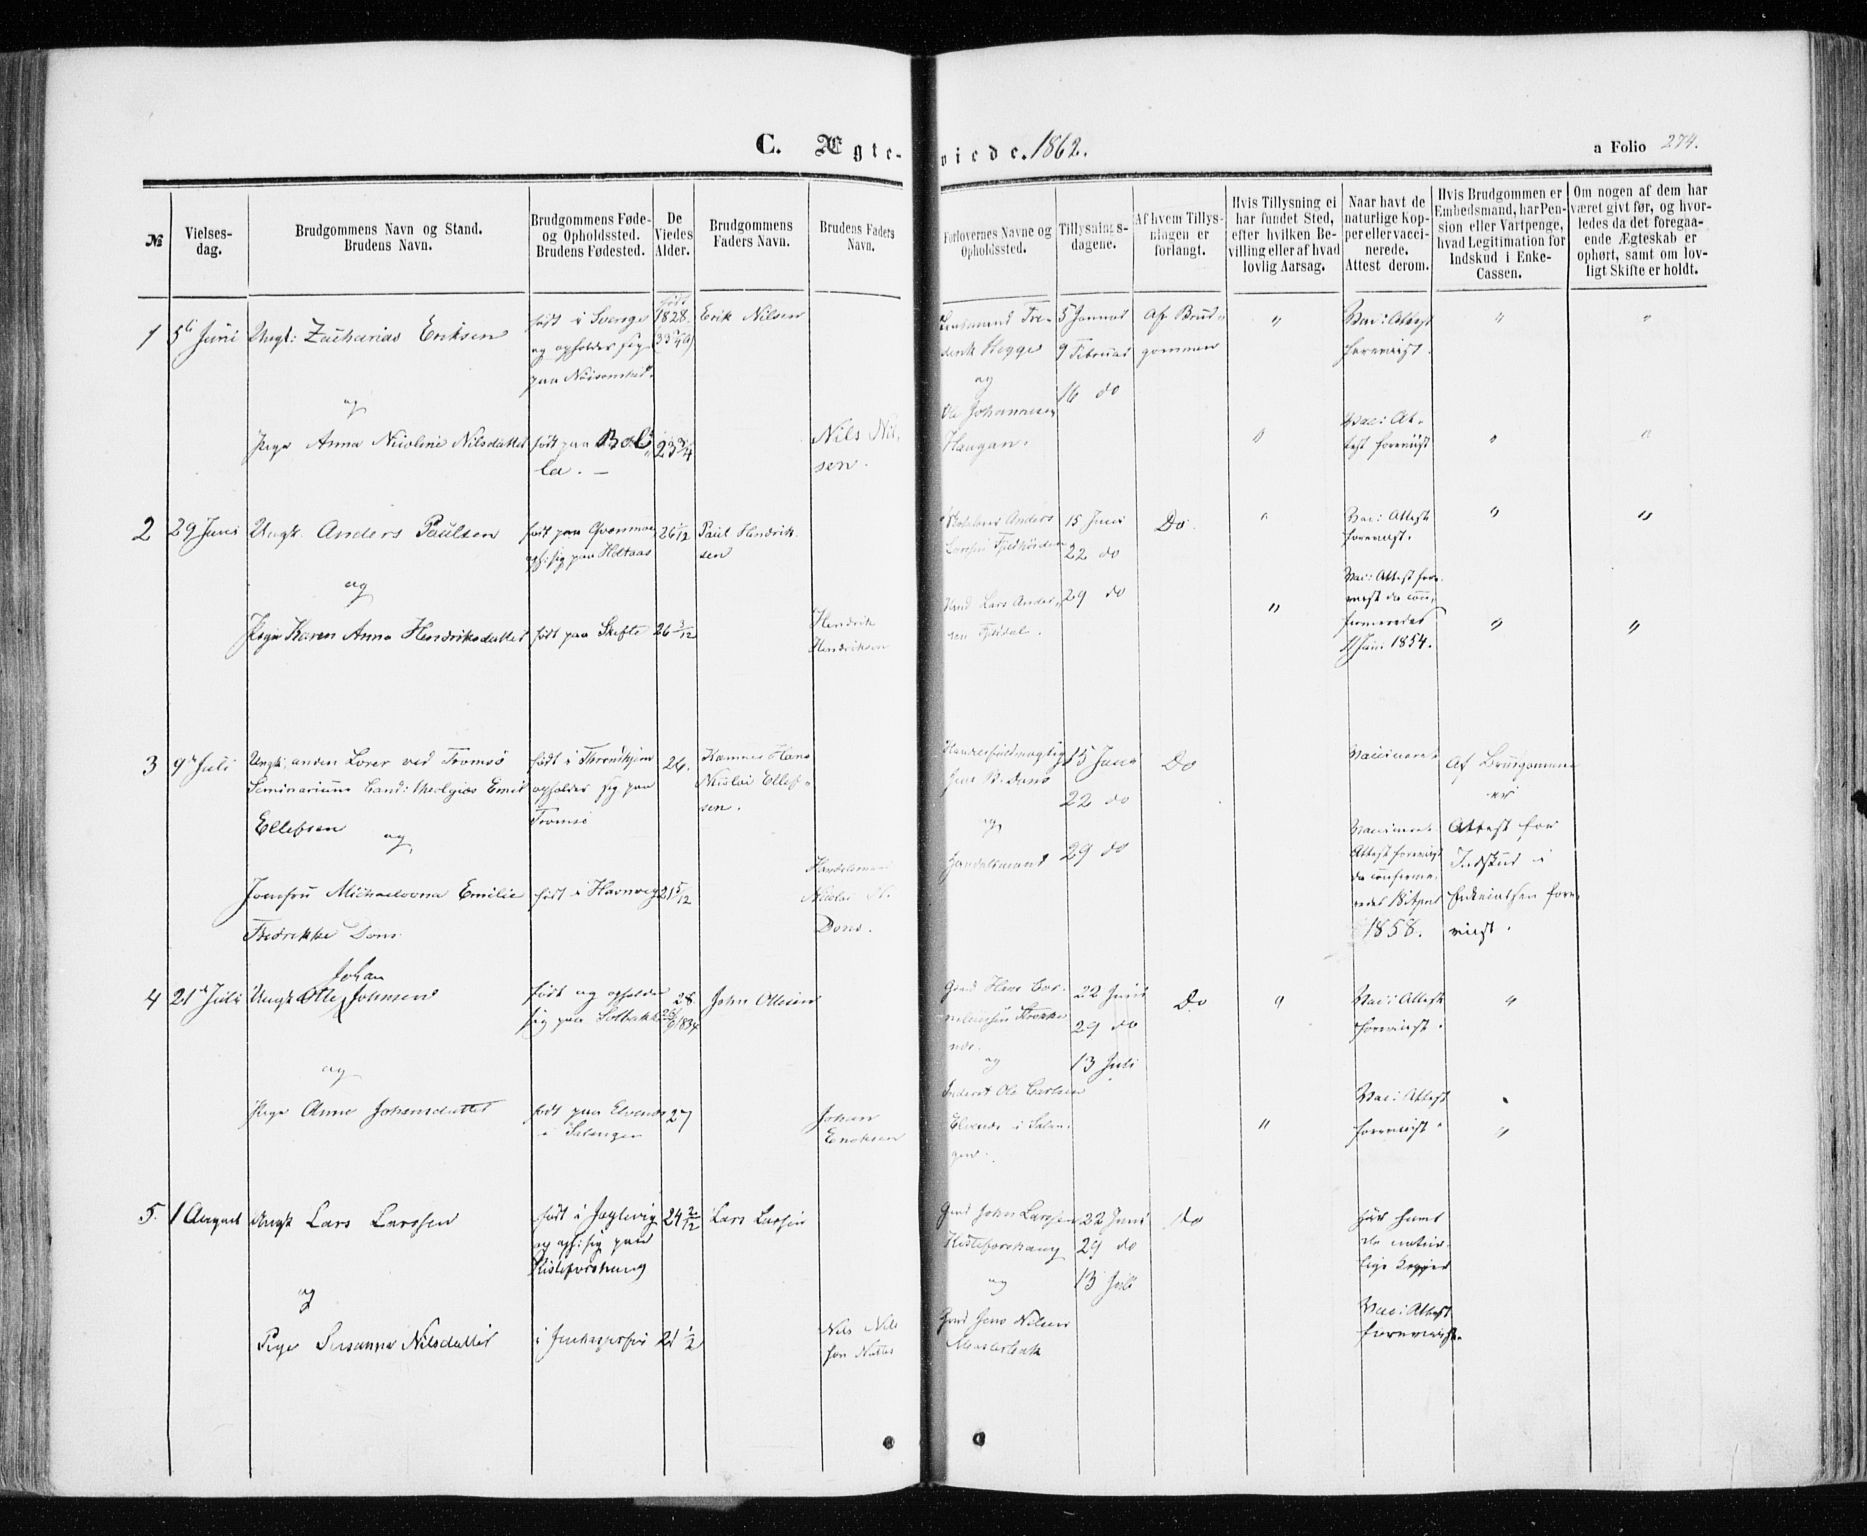 C. Ægte- viede. 1862.
a Folio 274.
№
Vielses-
dag.
Brudgommens Navn og Stand.
Brudens Navn.
Brudgommens Føde-
og Opholdssted.
Brudens Fødested.
De
Viedes
Alder.
Brudgommens
Faders Navn.
Brudens Faders
Navn.
Forlovernes Navne og
Opholdssted.
Tillysnings-
dagene.
Af hvem Tillys-
ningen er
forlangt.
Hvis Tillysning ei
har fundet Sted,
efter hvilken Be-
villing eller af hvad
lovlig Aarsag.
Naar havt de
naturlige Kop-
per eller vacci-
nerede.
Attest derom.
Hvis Brudgommen er
Embedsmand, har Pen-
sion eller Vartpenge,
hvad Legitimation for
Indskud i Enke-
Cassen.
Om nogen af dem har
været givt før, og hvor-
ledes da det foregaa-
ende Ægteskab er
ophørt, samt om lov-
ligt Skifte er holdt.
1
5te Juni
Ungk: Zacharias Eriksen
og
Pige Anna Nicoline Nilsdatter
født i Sverige
og opholder sig
paa
født paa Bol-
la. —
født
1828.
23 3/4
Erik Nilsen
Nils Nil-
sen.
Lensmand Fre-
derik Hegge
og
Ole Johannesen
Haugan.
5 Januar
9 Februar
16 do
Af Brud-
gommen
"
"
Vac: Attest
foreviist.
Vac: At-
test foreviist
"
"
"
"
2
29 Juni
Ungk. Anders Paulsen
og
Pige Karen Anna Hendriksdatter
født paa
oph: sig paa Holtaas
født paa Skefte
26 1/12
26 3/12
Paul Hendrik-
sen
Hendrik
Hendriksen
Anders
Larsen
Lars Ander-
sen Fjeldal.
15 Juni
22 do
29 do
Do.
"
"
Vac: Attest
foreviist.
Vac: Attest fore-
viist da con-
firmeredes
Juni 1854.
"
"
"
"
3
9de Juli
Ungk: anden Lærer ved Tromsø
Seminarium Cand: theologiæ Emil
Ellefsen
og
Jomfru Michaelovna Emilie
Fredrikke Dons
født i Throndhjem
opholder sig paa
Tromsø
født i Havnvig
26.
21 5/12
Hans
Nicolai Ellef-
sen.
Handelsmand
Nicolai H.
Dons.
Handelsfuldmægtig
Jens B. Dons
og
Handelsmand
15 Juni
22 do
29 do
Do
Vaccineret
Vaccineret
Attest foreviist
da confirme-
redes 18 April
1858.
Af Brudgommen
er
Attest for
Indskud i
Enkecassen fore-
viist.
4
21de Juli
Ungk Olle Johan Johnsen
og
Pige Anne Johansdatter
født og opholder
sig paa Solbakke
født paa Elvenes
i Salangen
28
1834
27
John Ollesen
Johan
Enoksen
Gmd Hans Cor-
neliussen
og
Inderst Ole Carlsen
Elvenes i Salan-
gen.
22 Juni
29 do
13 Juli
Do
"
"
Vac: Attest
foreviist.
Vac: Attest
foreviist.
"
"
5.
1 August
Ungk Lars Larssen
og
Pige Susanna Nilsdatter
født i Jægtevig
og oph: sig paa
Kisteforshaug
i
24 2/12
21 1/2
Lars Larssen
Nils Nil-
sen
Gmd John Larssen
Kisteforshaug
og
Gmd Jens Nilsen
22 Juni
29 do
13 Juli
Do
Har havt
de natur-
lige Kopper
Vac: Attest
foreviist.